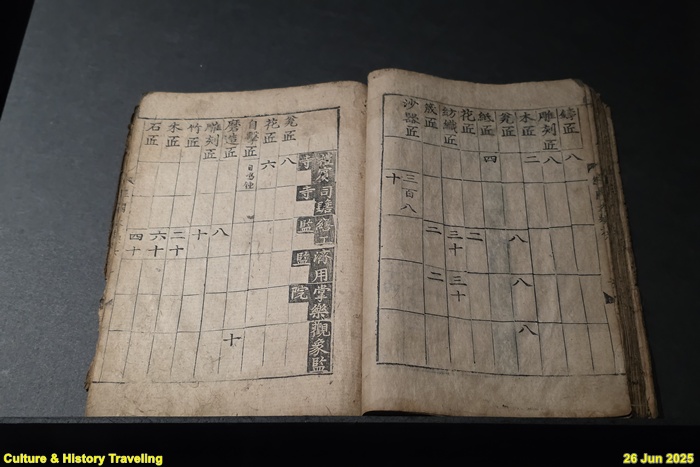 鑄匠 八
雕刻匠 八
木匠 二
瓮匠 八 八 八
紙匠 四
花匠 二
紡織匠 三十 三十
匠 二 二
沙器匠 三百八十
禮賓寺
司贍寺
繕工監
濟用監
掌樂院
觀象監
瓮匠 八
花匠 六
自擊匠 自鳴鐘
磨造匠 十
雕刻匠 八
竹匠 十
木匠 二十
石匠 六十 四十
Culture & History Traveling
26 Jun 2025